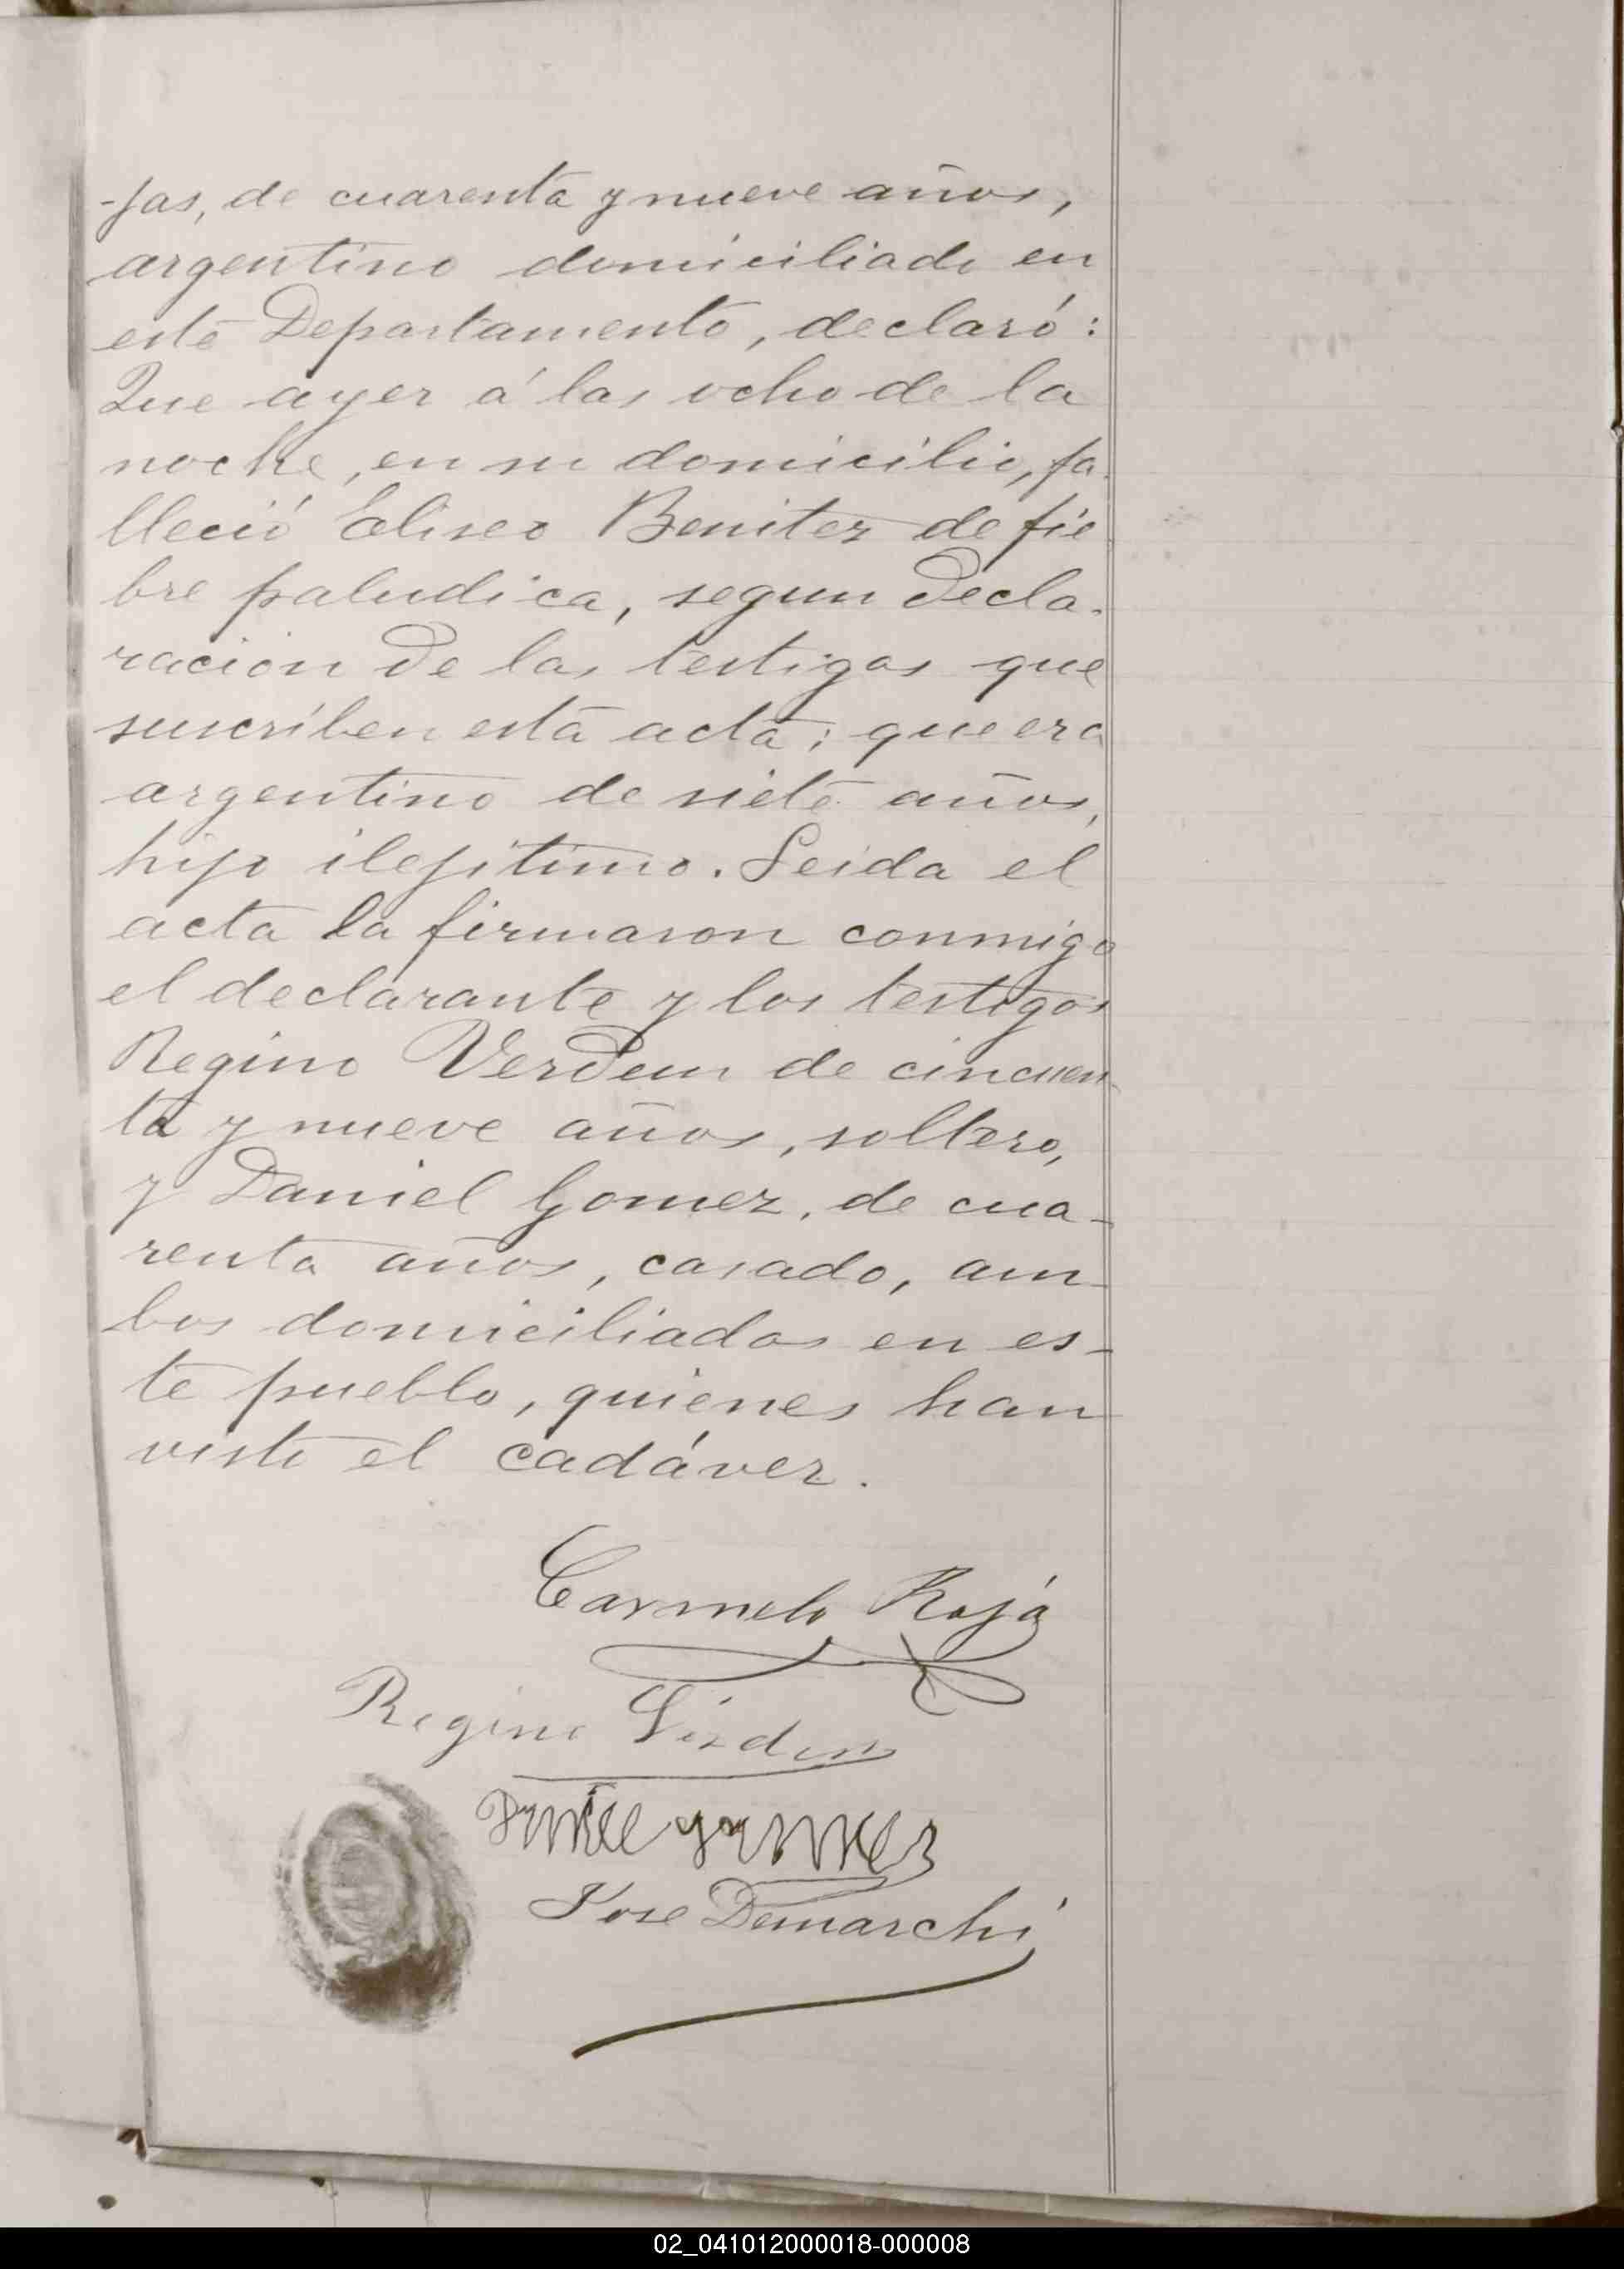 -jas, de cuarenta y nueve años,
argentino domiciliado en
este Departamento, declaró:
Que ayer á las ocho de la
noche, en su domicilio, fa-
lleció Eliseo Benitez de fie
bre paludica, segun decla-
racion de los testigos que
suscriben esta acta; que era
argentino de siete años,
hijo ilejitimo. Leida el
acta la firmaron conmigo
el declarante y los testigos
Regino Verdun de cincuen
ta y nueve años, soltero,
y Daniel Gomez, de cua-
renta años, casado, am-
bos domiciliados en es-
te pueblo, quienes han
visto el cadáver.
Carmelo Roja
Regino Virdun
Daniel gomez
Jose Demarchi
02_041012000018-000008